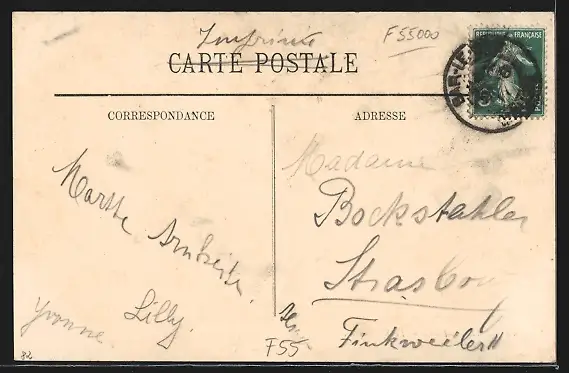 Imprimé
F55000
CARTE POSTALE
REPUBLIQUE FRANÇAISE
POSTES
BAR-LE
CORRESPONDANCE
ADRESSE
Madame
Bockstahler
Strasbourg
Finkweiler 11
Lilly
Yvonne
F55
82